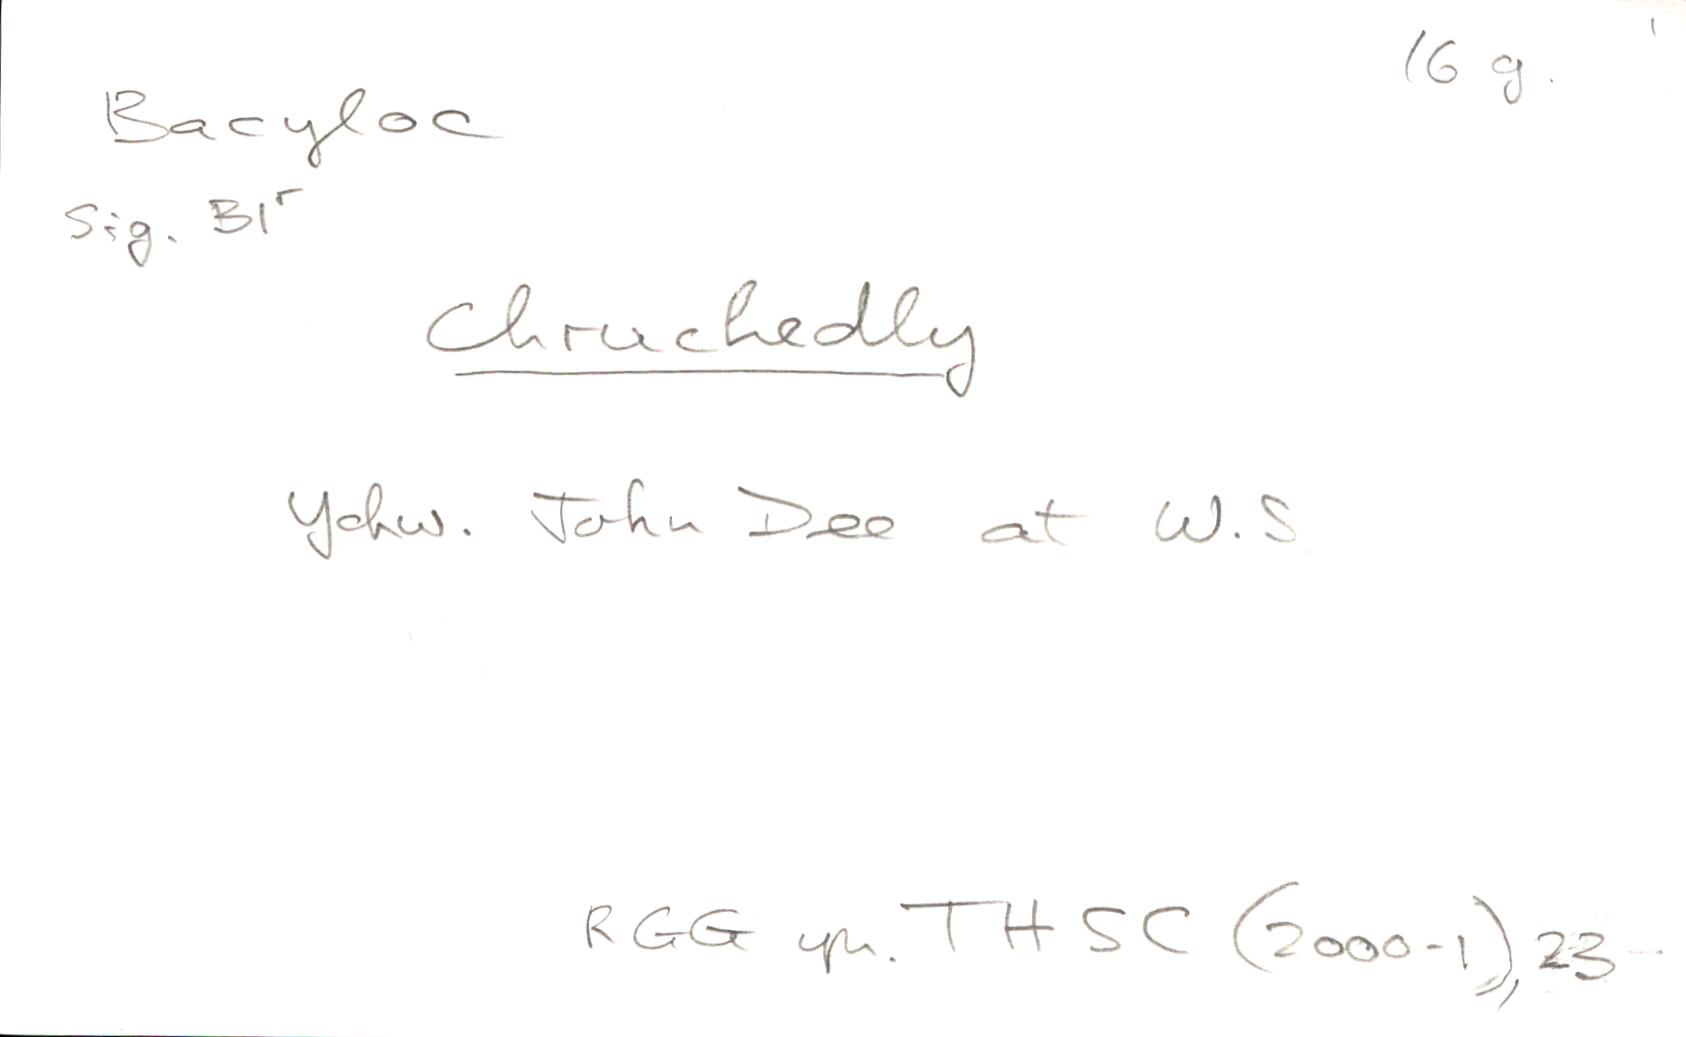 16 g.
Bacyloc
Sig. B1ʳ
Chruchedly
Ychw. John Dee at W.S.
RGG yn THSC (2000-1), 23